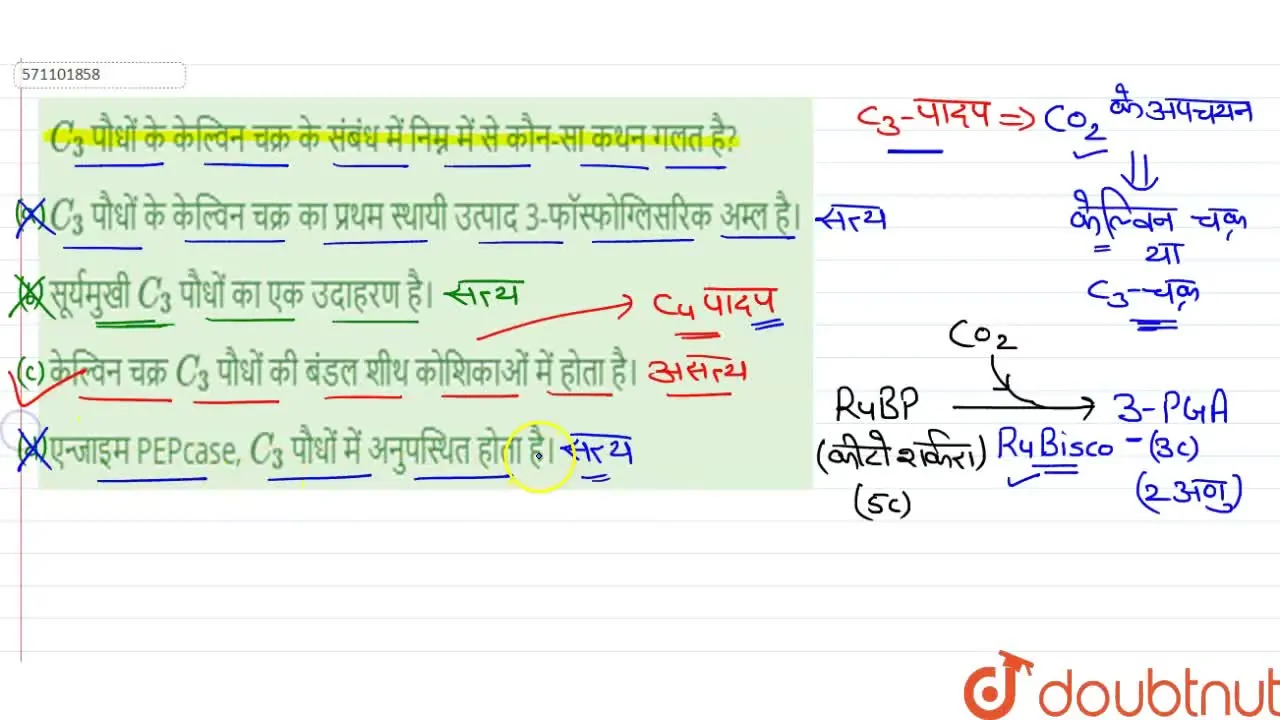 571101858
C3 पौधों के केल्विन चक्र के संबंध में निम्न में से कौन-सा कथन गलत है?
(a) C3 पौधों के केल्विन चक्र का प्रथम स्थायी उत्पाद 3-फॉस्फोग्लिसरिक अम्ल है। सत्य
(b) सूर्यमुखी C3 पौधों का एक उदाहरण है। सत्य
C4 पादप
(c) केल्विन चक्र C3 पौधों की बंडल शीथ कोशिकाओं में होता है। असत्य
(d) एन्जाइम PEPcase, C3 पौधों में अनुपस्थित होता है। सत्य
C3-पादप ⇒ CO2 के अपचयन
केल्विन चक्र
या
C3-चक्र
CO2
RuBP → 3-PGA
(कीटो शर्करा) RuBisco - (3c)
(5c) (2 अणु)
doubtnut